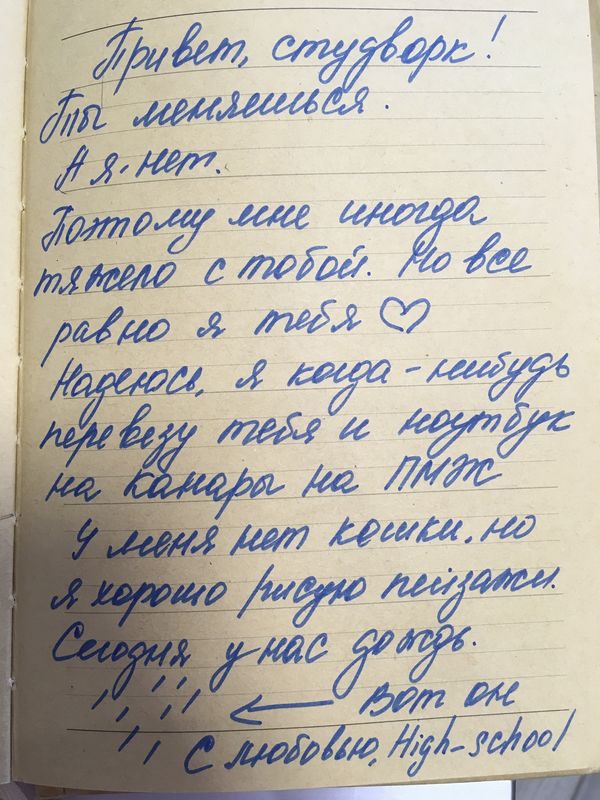 Привет, студворк!
Ты меняешься.
А я - нет.
Поэтому мне иногда
тяжело с тобой. Но все
равно я тебя ♡
Надеюсь, я когда-нибудь
перевезу тебя и ноутбук
на Канары на ПМЖ
У меня нет кошки, но
я хорошо рисую пейзажи.
Сегодня у нас дождь.
Вот он
С любовью, High-school